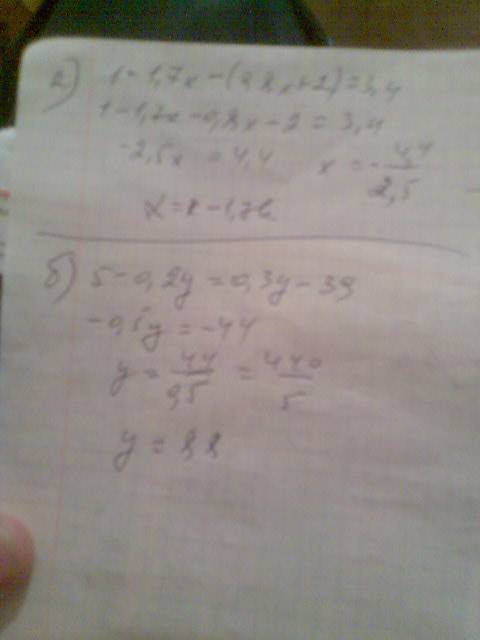 а) 1-1,7x-(0,8x+2)=3,4
1-1,7x-0,8x-2=3,4
-2,5x = 4,4 x = -4,4/2,5
x = -1,76
б) 5-0,2y=0,3y-39
-0,5y=-44
y = 44/0,5 = 440/5
y = 88